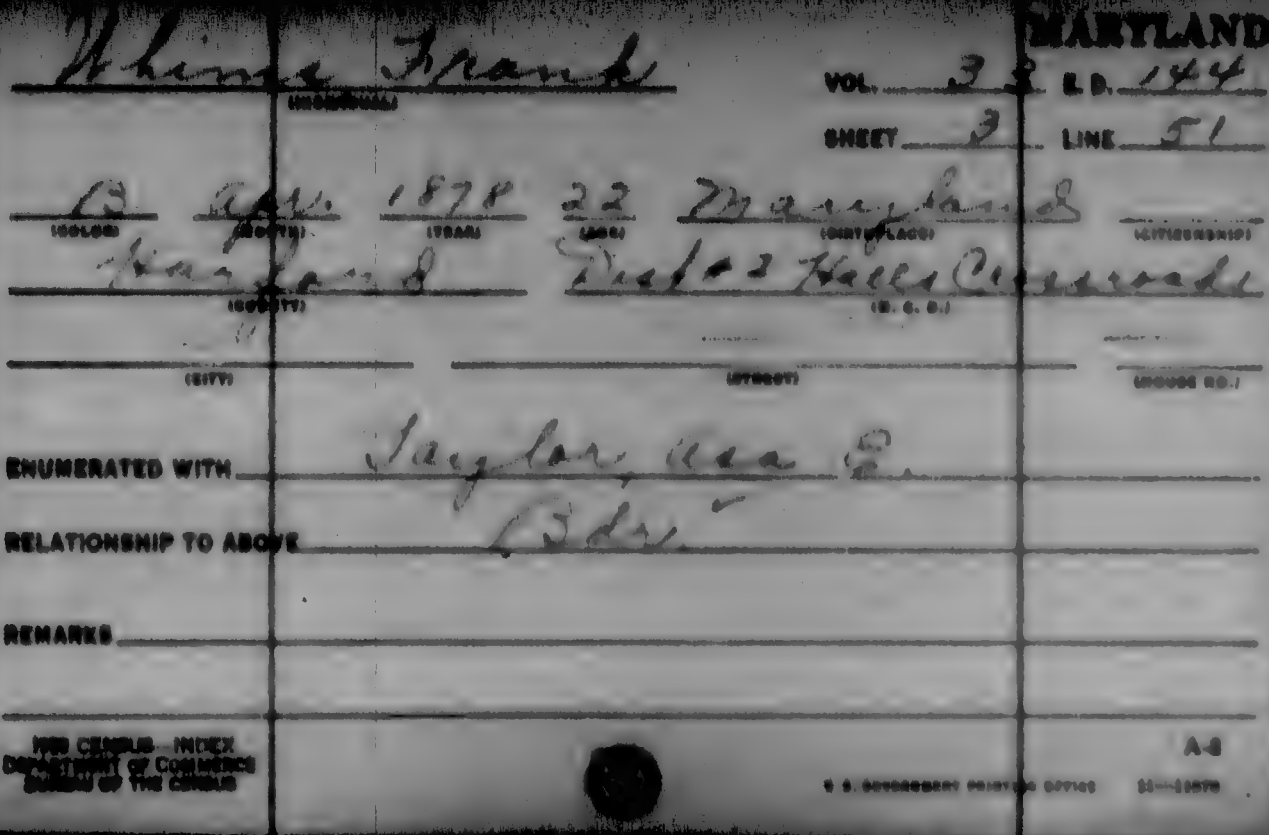 MARYLAND
Frank
VOL. 33 E. D. 144
(INDIVIDUAL)
SHEET 3 LINE 51
B Apr. 1878 22 Maryland
(COLOR) (MONTH) (YEAR) (AGE) (BIRTHPLACE) (CITIZENSHIP)
Harford Dist #2 Halls Crossroads
(COUNTY) (M. C. D.)
(CITY) (STREET) (HOUSE NO.)
ENUMERATED WITH Taylor, Asa E.
RELATIONSHIP TO ABOVE Bdr. ✓
REMARKS
1900 CENSUS—INDEX
DEPARTMENT OF COMMERCE
BUREAU OF THE CENSUS
A-8
U. S. GOVERNMENT PRINTING OFFICE